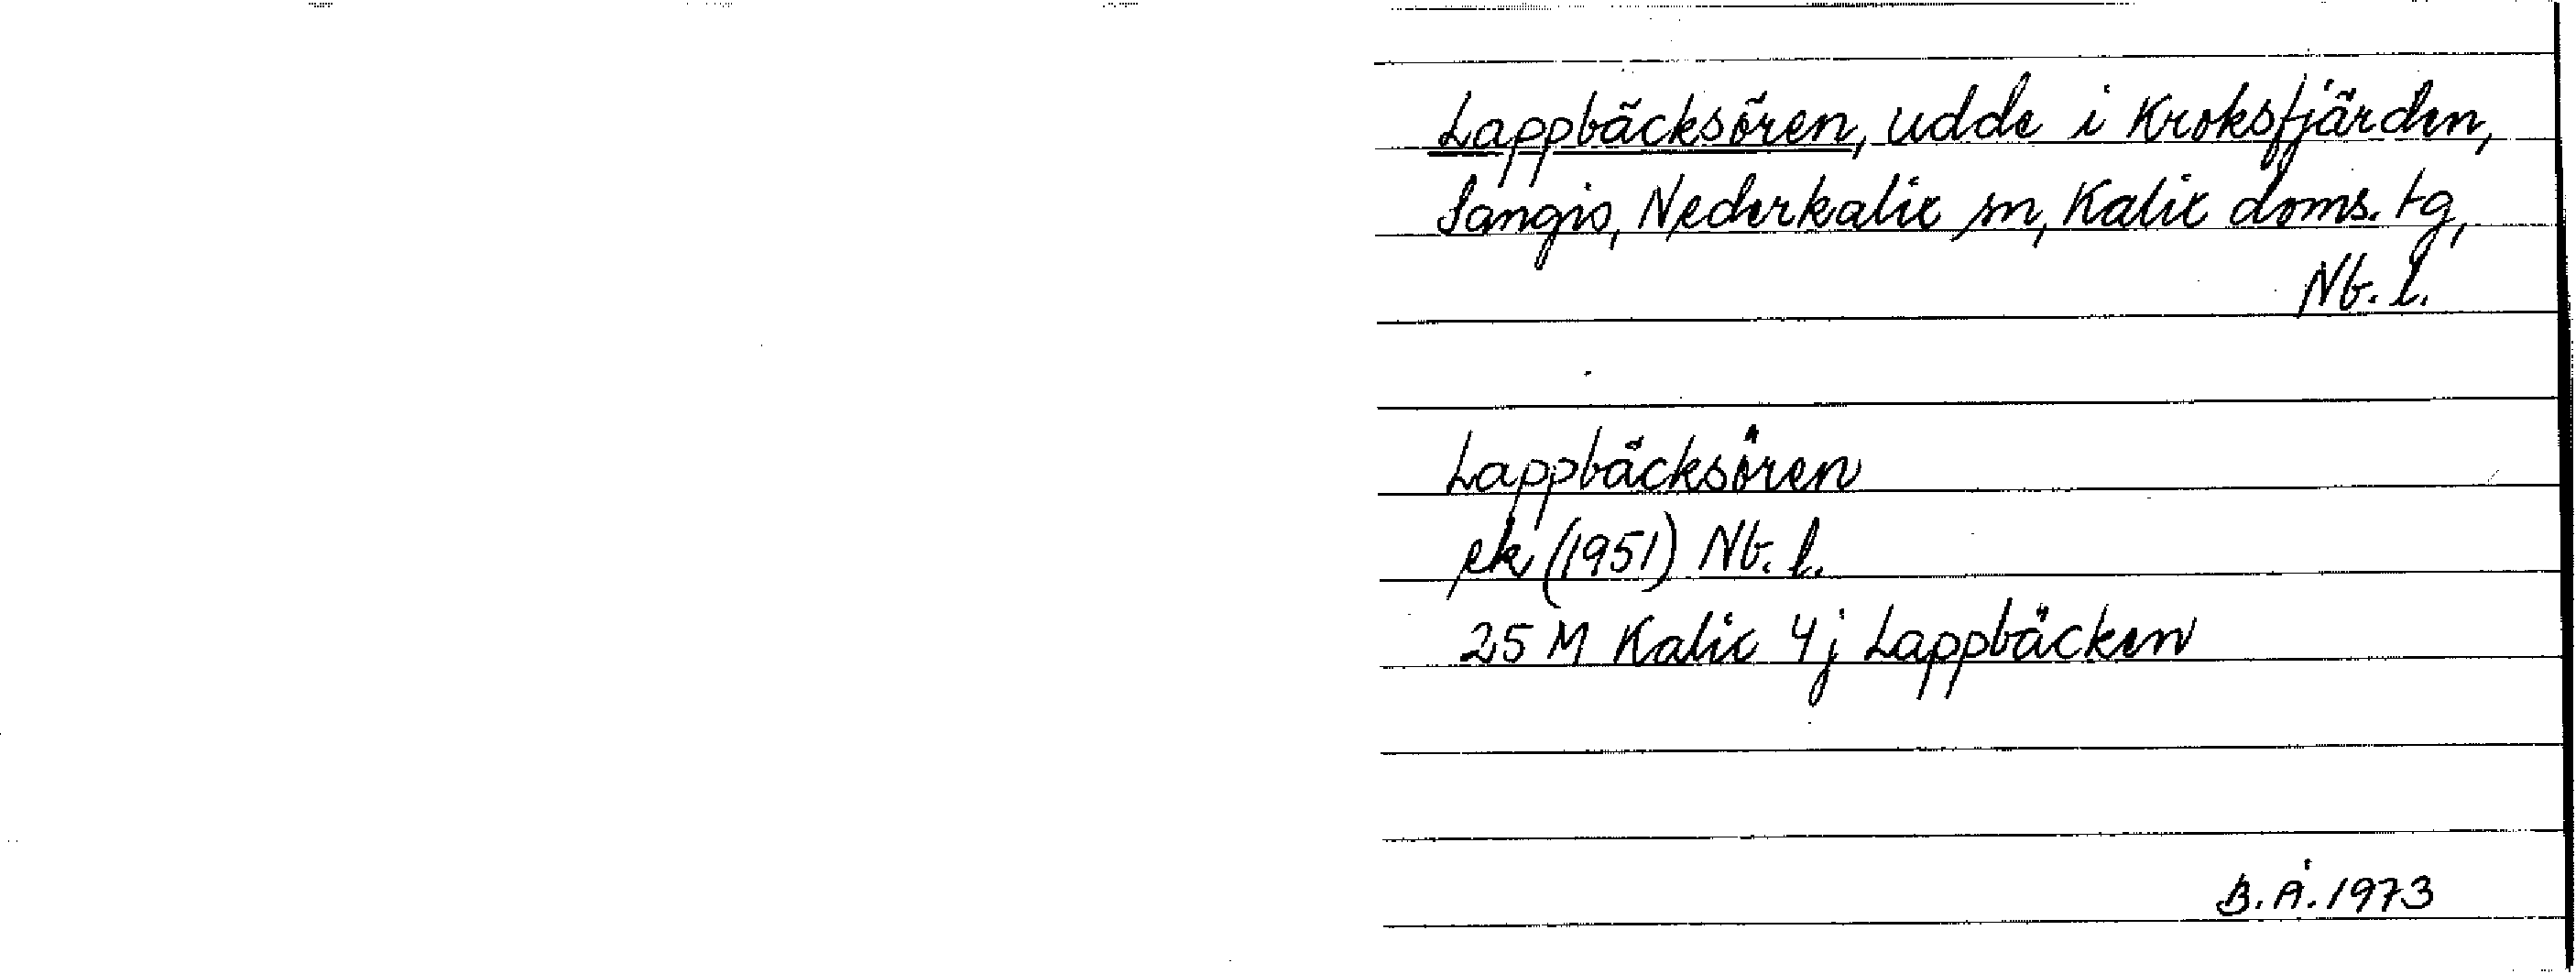 Lappbäcksören, udde i Kroksfjärden,
Sangis, Nederkalix sn, Kalix doms. tg,
Nb. l.
Lappbäcksören
ek (1951) Nb. l.
25 M Kalix 4j Lappbäcken
B.Å. 1973